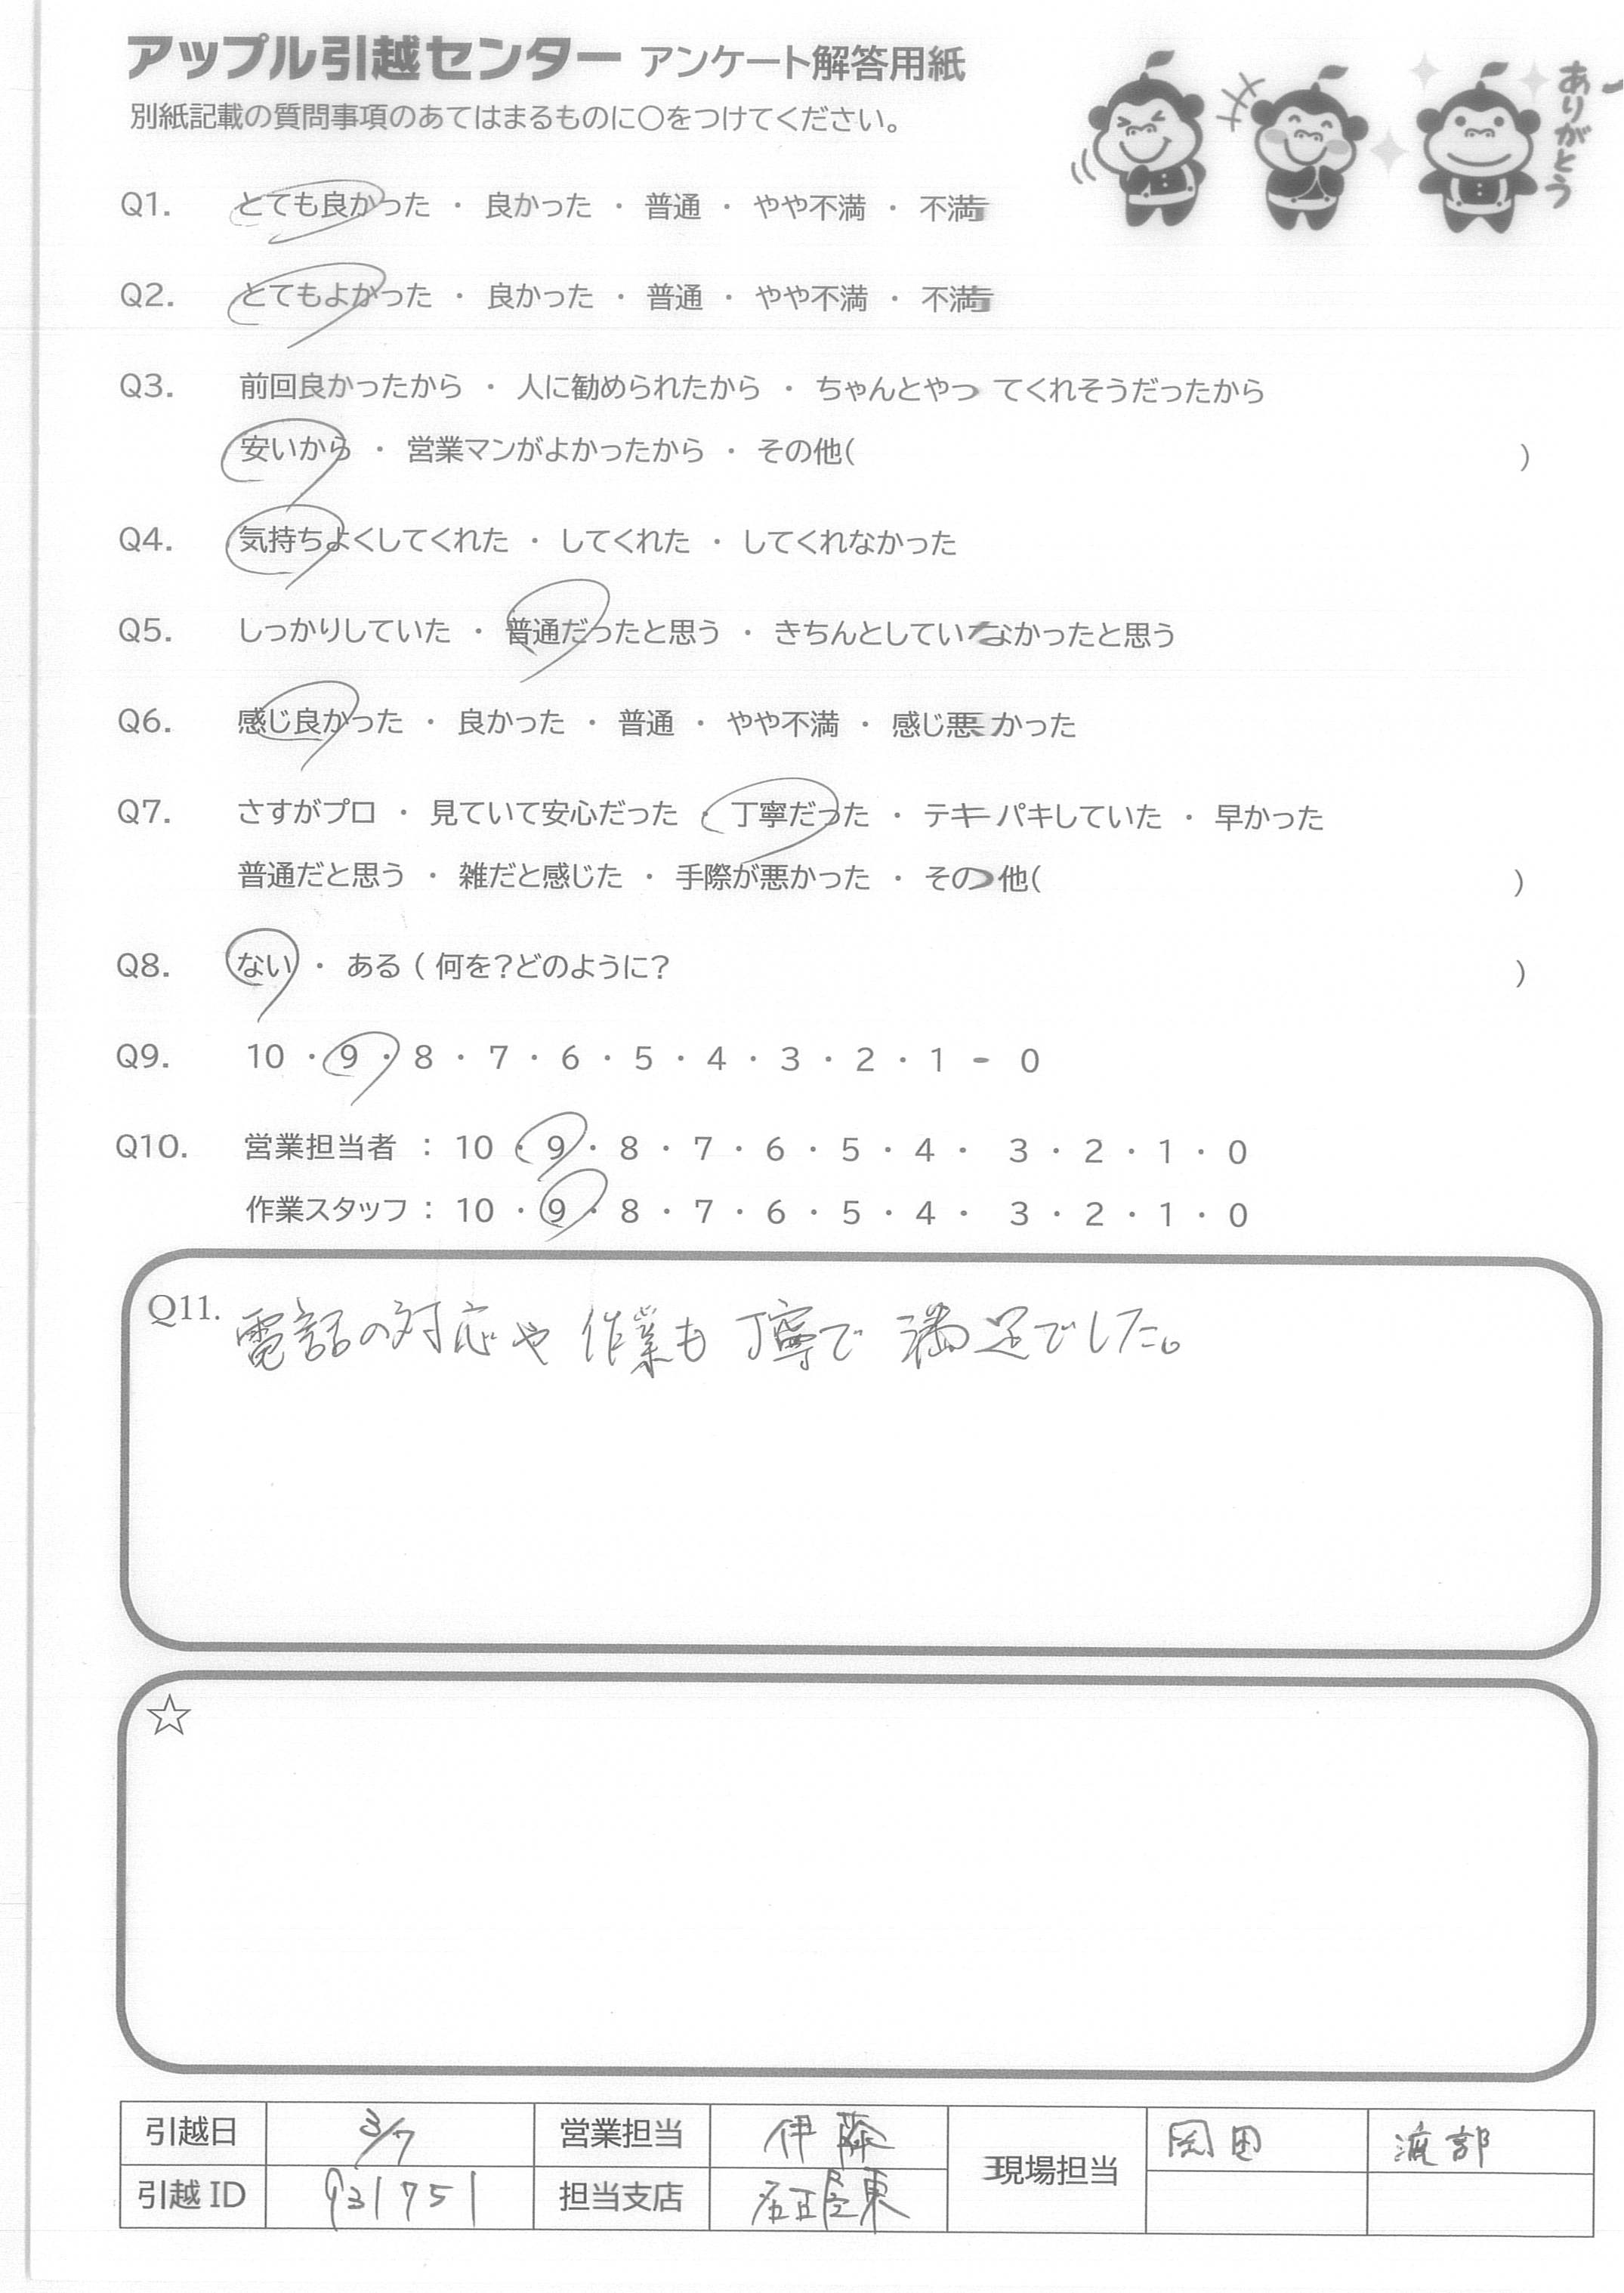 アップル引越センター アンケート解答用紙
ありがとう
別紙記載の質問事項のあてはまるものに○をつけてください。
Q1. とても良かった ・ 良かった ・ 普通 ・ やや不満 ・ 不満
Q2. とてもよかった ・ 良かった ・ 普通 ・ やや不満 ・ 不満
Q3. 前回良かったから ・ 人に勧められたから ・ ちゃんとやってくれそうだったから
安いから ・ 営業マンがよかったから ・ その他( )
Q4. 気持ちよくしてくれた ・ してくれた ・ してくれなかった
Q5. しっかりしていた ・ 普通だったと思う ・ きちんとしていなかったと思う
Q6. 感じ良かった ・ 良かった ・ 普通 ・ やや不満 ・ 感じ悪かった
Q7. さすがプロ ・ 見ていて安心だった ・ 丁寧だった ・ テキパキしていた ・ 早かった
普通だと思う ・ 雑だと感じた ・ 手際が悪かった ・ その他( )
Q8. ない ・ ある ( 何を?どのように? )
Q9. 10 ・ 9 ・ 8 ・ 7 ・ 6 ・ 5 ・ 4 ・ 3 ・ 2 ・ 1 ・ 0
Q10. 営業担当者 : 10 ・ 9 ・ 8 ・ 7 ・ 6 ・ 5 ・ 4 ・ 3 ・ 2 ・ 1 ・ 0
作業スタッフ : 10 ・ 9 ・ 8 ・ 7 ・ 6 ・ 5 ・ 4 ・ 3 ・ 2 ・ 1 ・ 0
Q11. 電話の対応や作業も丁寧で満足でした。
☆
引越日 3/7 営業担当 伊藤 現場担当 岡田 渡部
引越ID 931751 担当支店 名古屋東